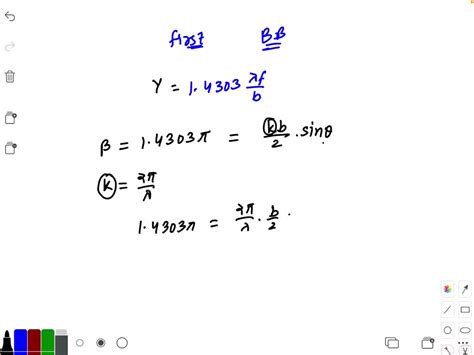 first B.B
Y = 1.4303 λf/b
β = 1.4303π = kb/2 . sinθ
k = 2π/λ
1.4303π = 2π/λ . b/2 .